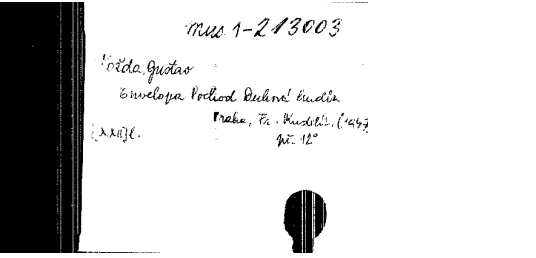 mus. 1-213003
Vožda, Gustav
Envelopa Pochod Dechová hudba
Praha, Fr. Kudelík, (1947)
př. 12°